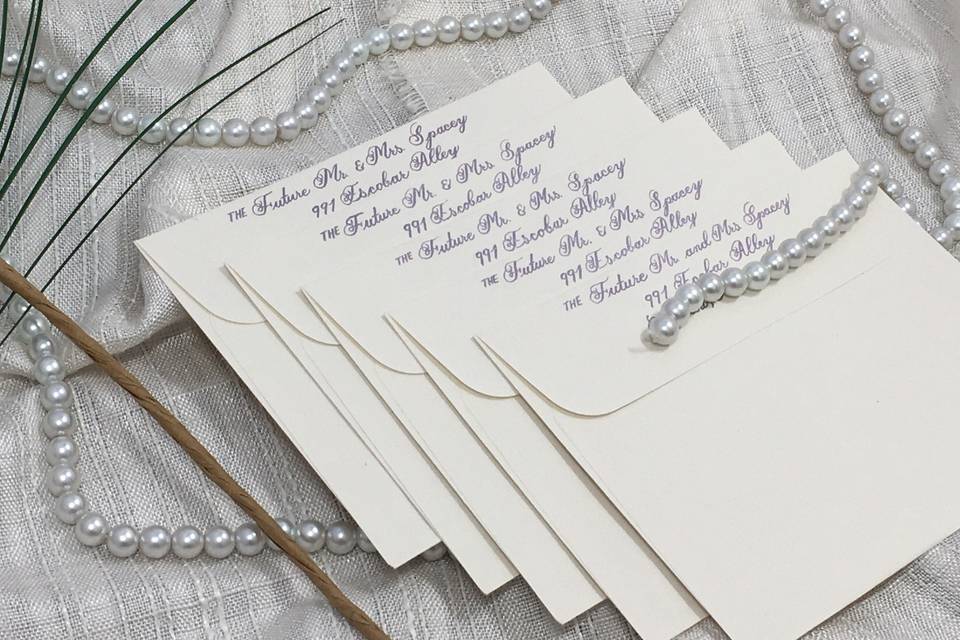 THE Future Mr. & Mrs. Spacey
991 Escobar Alley
THE Future Mr. & Mrs. Spacey
991 Escobar Alley
THE Future Mr. & Mrs. Spacey
991 Escobar Alley
THE Future Mr. & Mrs Spacey
991 Escobar Alley
THE Future Mr. and Mrs Spacey
991 Escobar Alley